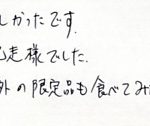 しかったです.
馳走様でした.
外の限定品も食べてみ